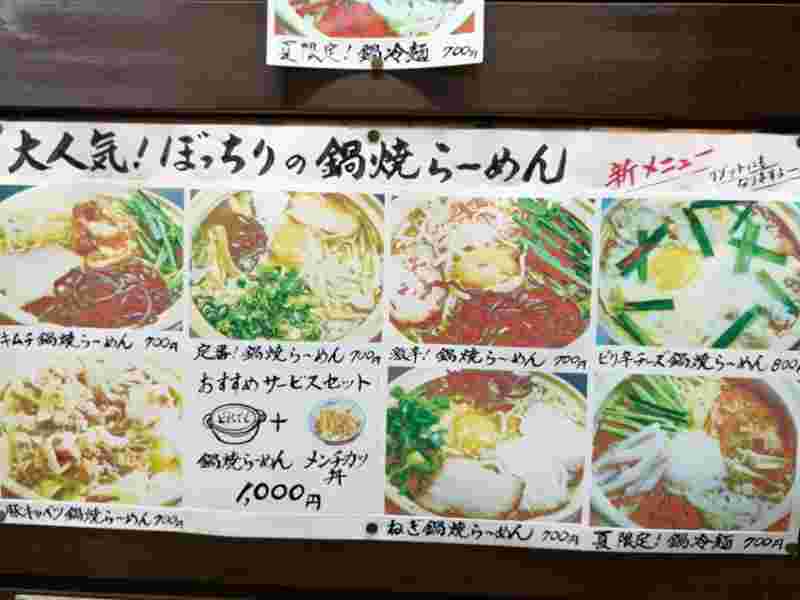 夏限定!鍋冷麺 700円
大人気!ぼっちりの鍋焼らーめん
新メニュー
リゾットにも
なりますよー
キムチ鍋焼らーめん 700円
定番!鍋焼らーめん 700円
激辛!鍋焼らーめん 700円
ピリ辛チーズ鍋焼らーめん 800円
おすすめサービスセット
どれでも +
鍋焼らーめん メンチカツ丼
1,000円
豚キャベツ鍋焼らーめん 700円
ねぎ鍋焼らーめん 700円
夏限定!鍋冷麺 700円